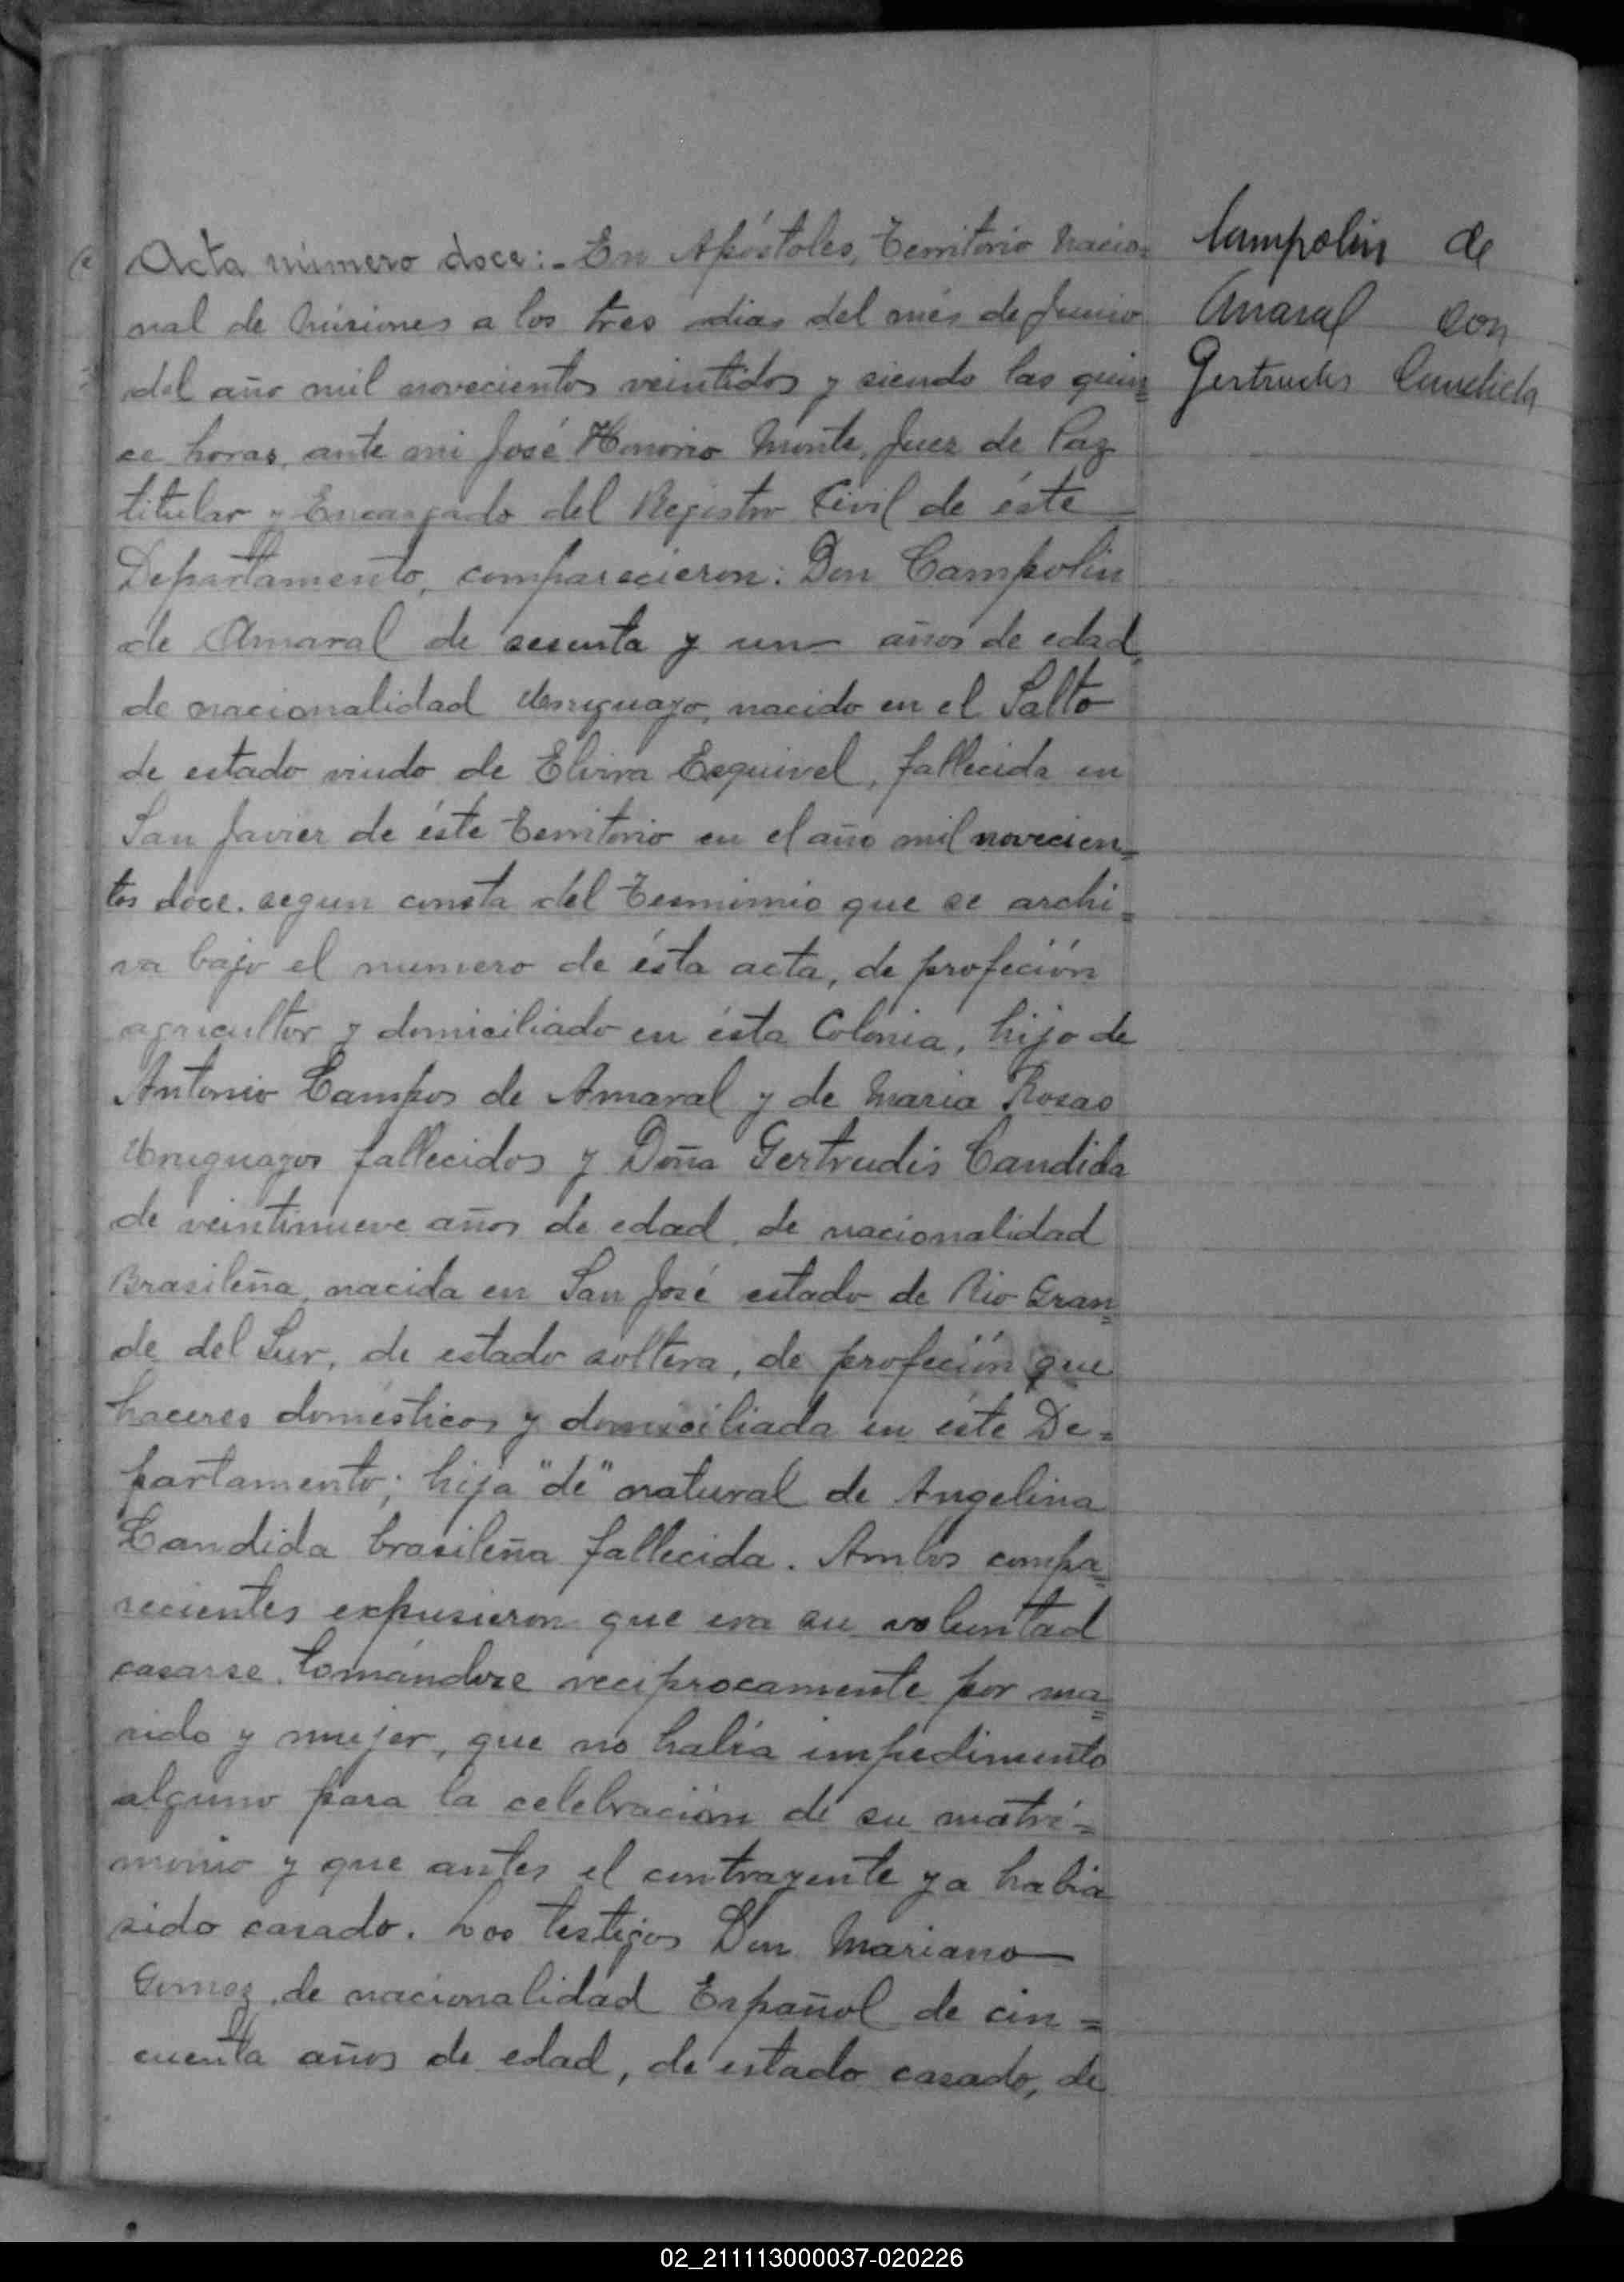 Acta número doce:- En Apóstoles, Territorio Nacio=
nal de Misiones a los tres dias del més de Junio
del año mil novecientos veintidos y siendo las quin=
ce horas, ante mi José Honorio Monte, Juez de Paz
titular y Encargado del Registro Civil de éste
Departamento, comparecieron: Don Campolin
de Amaral de sesenta y un años de edad,
de nacionalidad Uruguayo, nacido en el Salto
de estado viudo de Elvira Esquivel, fallecida en
San Javier de éste Territorio en el año mil novecien=
tos doce. segun consta del que se archi=
va bajo el numero de ésta acta, de profeción
agricultor y domiciliado en ésta Colonia, hijo de
Antonio Campos de Amaral y de Maria Rosas
Uruguayos fallecidos y Doña Gertrudis Candida
de veintinueve años de edad, de nacionalidad
Brasileña, nacida en San José estado de Rio Gran=
de del Sur, de estado soltera, de profeción que
haceres domésticos y domiciliada en éste De=
partamento; hija "de" natural de Angelina
Candida brasileña fallecida. Ambos compa=
recientes expusieron que era su voluntad
casarse tomándose reciprocamente por ma=
rido y mujer, que no habia impedimento
alguno para la celebración de su matri=
monio y que antes el contrayente ya habia
sido casado. Los testigos Don Mariano
Gomez, de nacionalidad Español de cin=
cuenta años de edad, de estado casado, de
Campolin de
Amaral con
Gertrudis Candida
02_211113000037-020226